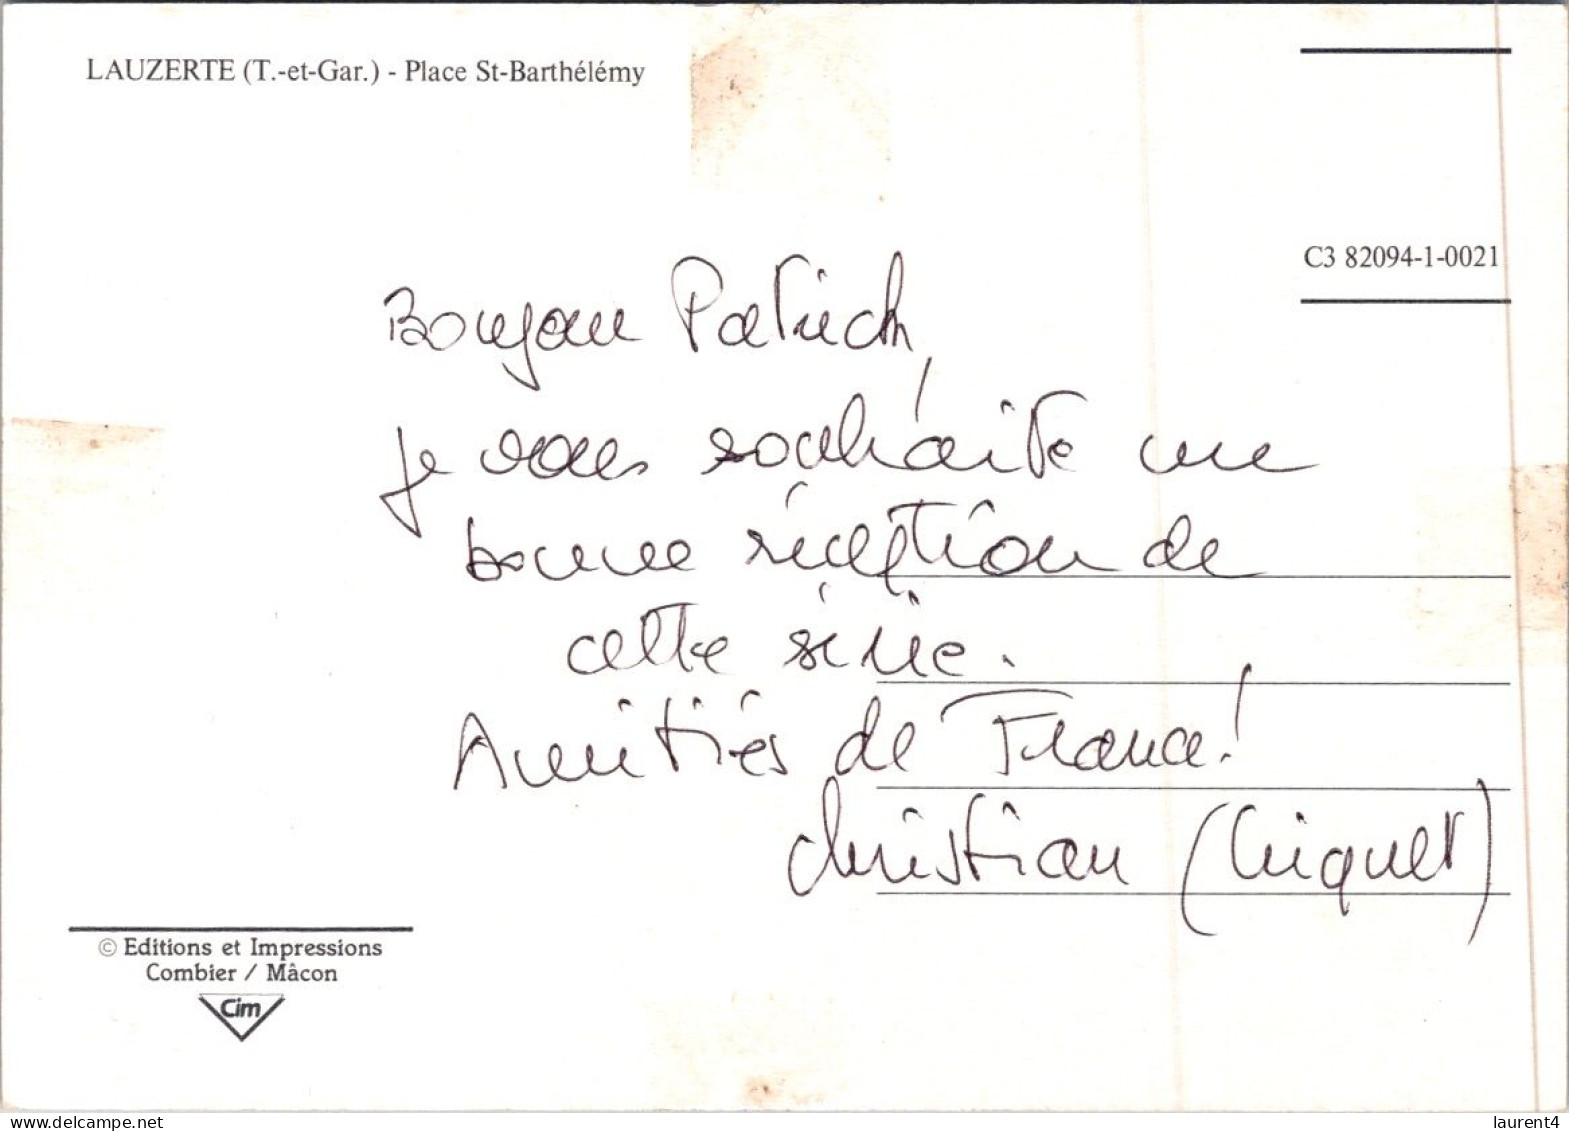 LAUZERTE (T.-et-Gar.) - Place St-Barthélémy
C3 82094-1-0021
Bonjour Patrick,
je vous souhaite une
bonne réception de
cette série.
Amitiés de France!
Christian (Criquet)
© Editions et Impressions
Combier / Mâcon
Cim
www.delcampe.net
laurent4